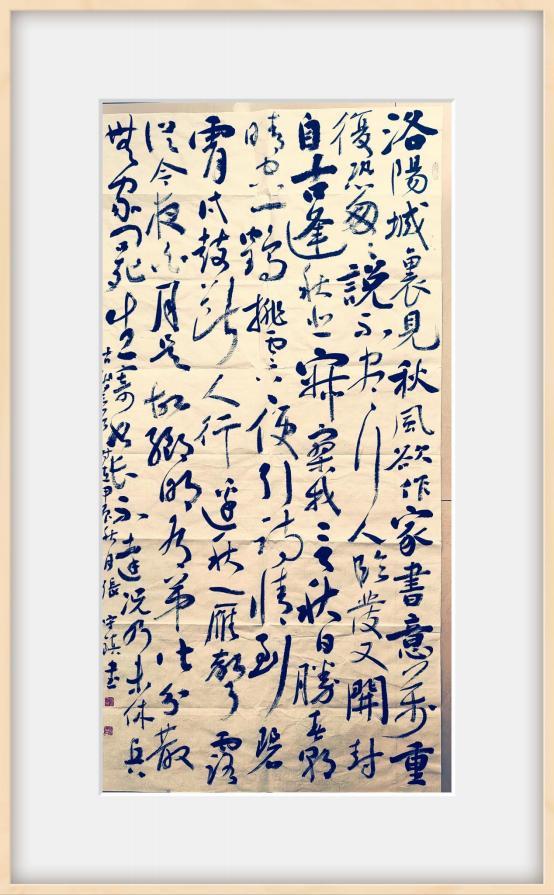 洛陽城裏見秋風欲作家書意萬重
復恐匆匆說不盡行人臨發又開封
自古逢秋悲寂寥我言秋日勝春朝
晴空一鶴排雲上便引詩情到碧
霄戍鼓斷人行邊秋一雁聲露
從今夜白月是故鄉明有弟皆分散
無家問死生寄書長不達況乃未休兵
古詩三首甲辰秋月張守琪書